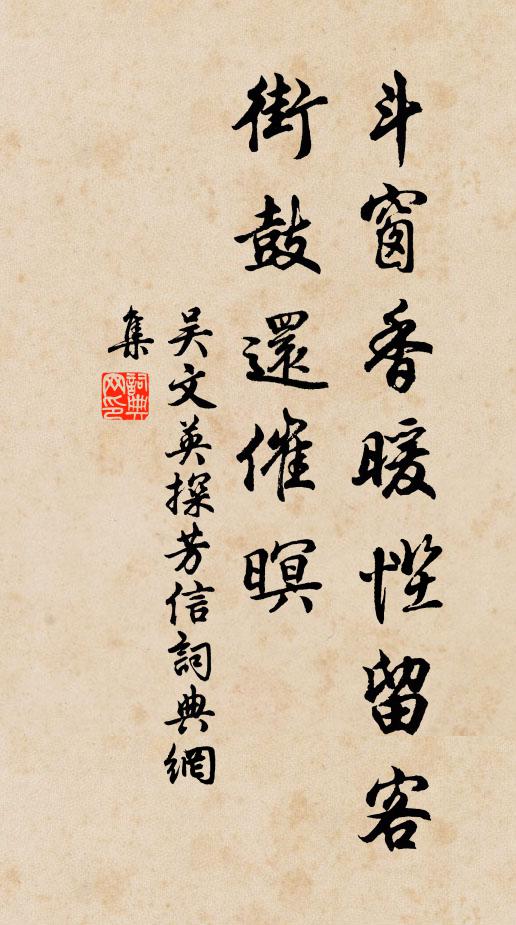 斗窗香暖慳留客
街鼓還催暝
吴文英探芳信詞典網
集
詞典网印